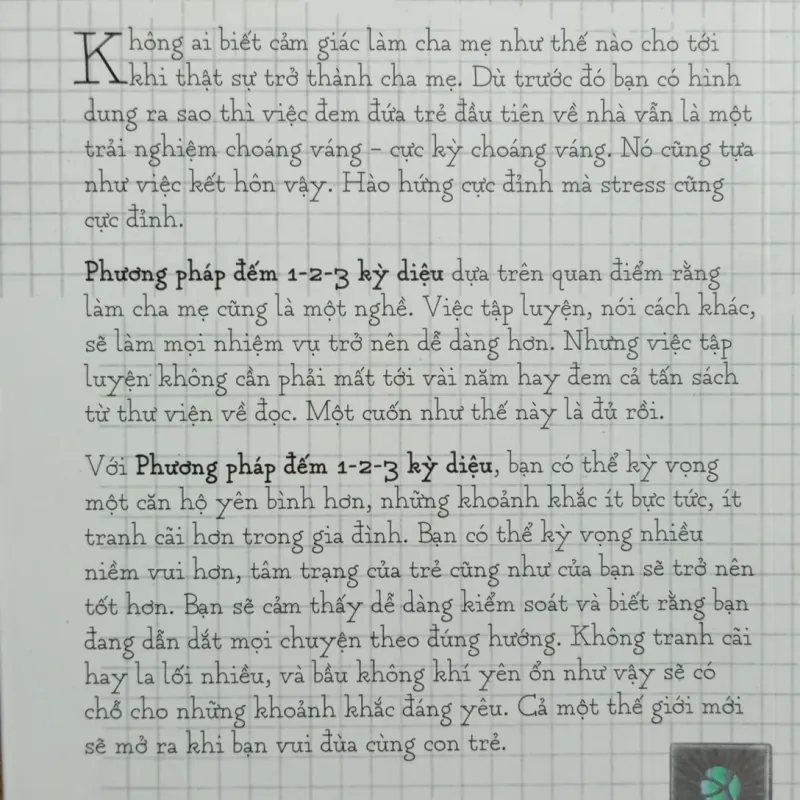 Không ai biết cảm giác làm cha mẹ như thế nào cho tới
khi thật sự trở thành cha mẹ. Dù trước đó bạn có hình
dung ra sao thì việc đem đứa trẻ đầu tiên về nhà vẫn là một
trải nghiệm choáng váng - cực kỳ choáng váng. Nó cũng tựa
như việc kết hôn vậy. Hào hứng cực đỉnh mà stress cũng
cực đỉnh.
Phương pháp đếm 1-2-3 kỳ diệu dựa trên quan điểm rằng
làm cha mẹ cũng là một nghề. Việc tập luyện, nói cách khác,
sẽ làm mọi nhiệm vụ trở nên dễ dàng hơn. Nhưng việc tập
luyện không cần phải mất tới vài năm hay đem cả tấn sách
từ thư viện về đọc. Một cuốn như thế này là đủ rồi.
Với Phương pháp đếm 1-2-3 kỳ diệu, bạn có thể kỳ vọng
một căn hộ yên bình hơn, những khoảnh khắc ít bực tức, ít
tranh cãi hơn trong gia đình. Bạn có thể kỳ vọng nhiều
niềm vui hơn, tâm trạng của trẻ cũng như của bạn sẽ trở nên
tốt hơn. Bạn sẽ cảm thấy dễ dàng kiểm soát và biết rằng bạn
đang dẫn dắt mọi chuyện theo đúng hướng. Không tranh cãi
hay la lối nhiều, và bầu không khí yên ổn như vậy sẽ có
chỗ cho những khoảnh khắc đáng yêu. Cả một thế giới mới
sẽ mở ra khi bạn vui đùa cùng con trẻ.